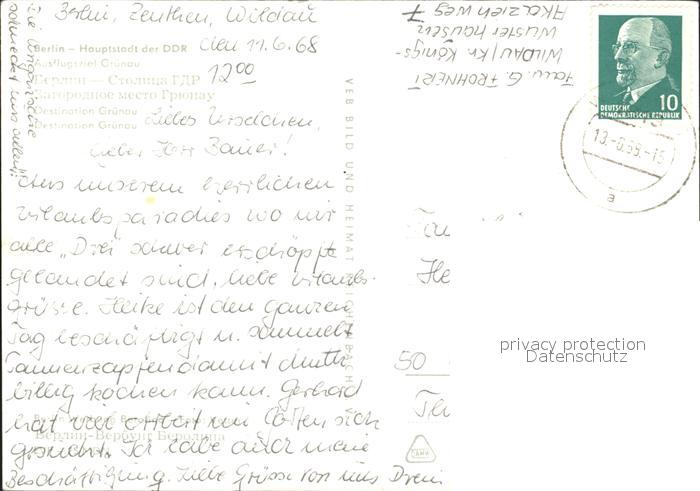 Berlin, Zeuthen, Wildau
den 11.6.68
12⁰⁰
Berlin – Hauptstadt der DDR
Ausflugsziel Grünau
Берлин – Столица ГДР
Загородное место Грюнау
Destination Grünau
Destination Grünau
Liebes Urselchen,
lieber Herr Bauer!
Aus unserem herrlichen
Urlaubsparadies wo wir
alle „Drei schwer erschöpft
gelandet sind, liebe Urlaubs-
grüsse. Heike ist den ganzen
Tag beschäftigt u. sammelt
Tannenzapfen damit Mutti
billig kochen kann. Gerhard
hat viel Arbeit im
gesucht. Ich habe auch meine
Beschäftigung. Liebe Grüsse von uns Dreien
schmeckt uns allen!
VEB BILD UND HEIMAT REICHENBACH
Fam. G. FROHNERT
WILDAU / Kr. Königs-
Wusterhausen
Akazienweg 7
10
DEUTSCHE
DEMOKRATISCHE REPUBLIK
13.-6.68.-15
a
50
privacy protection
Datenschutz